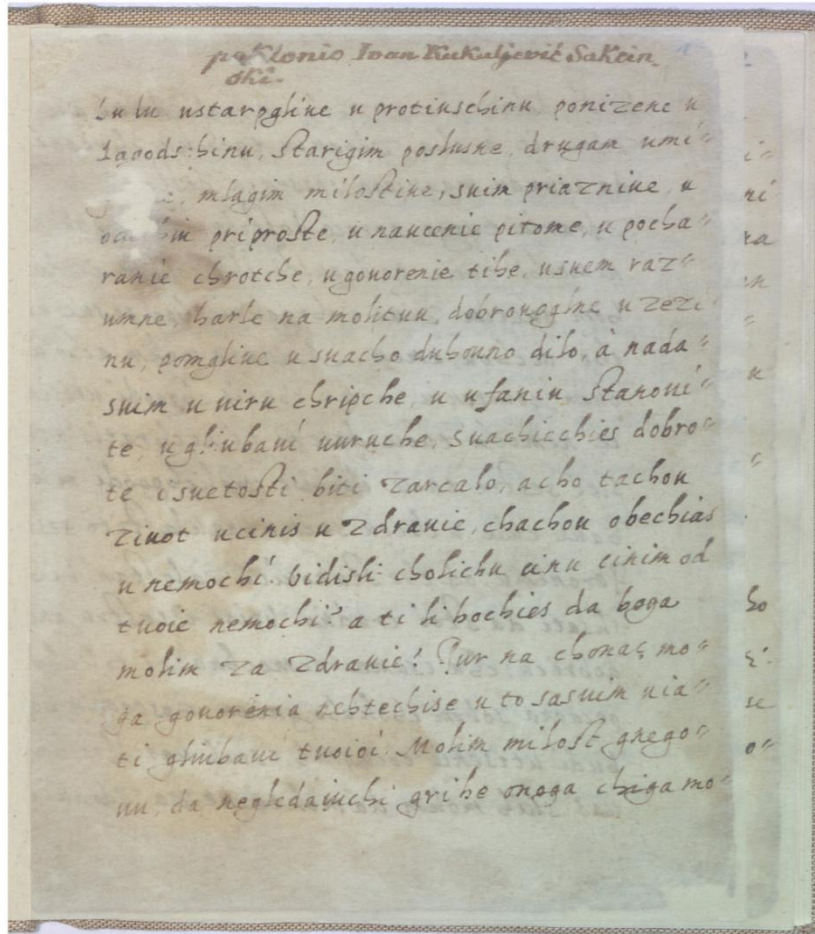 poklonio Ivan Kukuljević Sakcin
ski.
ustarpgliue u protiuschinu, ponizene u
starigim poslusne, drugam umi"
mlagim milostiue, suim priazniue, u
priproste, u naucenie pitome, u pocha"
ranie chrotche, u gouorenie tihe, u suem raz"
umne, harle na molituu, dobrouoglne u zezi"
nu, pomgliue u suacho duhouno dilo, à nada"
suim u uiru chripche, u ufaniu stanoui"
te, u gliubaui uuruche, suachicchies dobro"
te i suetosti biti zarcalo, acho tachou
ziuot ucinis u zdrauie, chachou obechias
u nemochi! Vidisli cholichu cinu cinim od
tuoie nemochi? a ti li hochies da boga
molim za zdrauie! Jur na chonaç mo"
ga gouorenia rehtechise u to sasuim uia"
ti gliubaui tuoioi. Molim milost gnego"
uu, da negledaiuchi grihe onoga chiga mo"